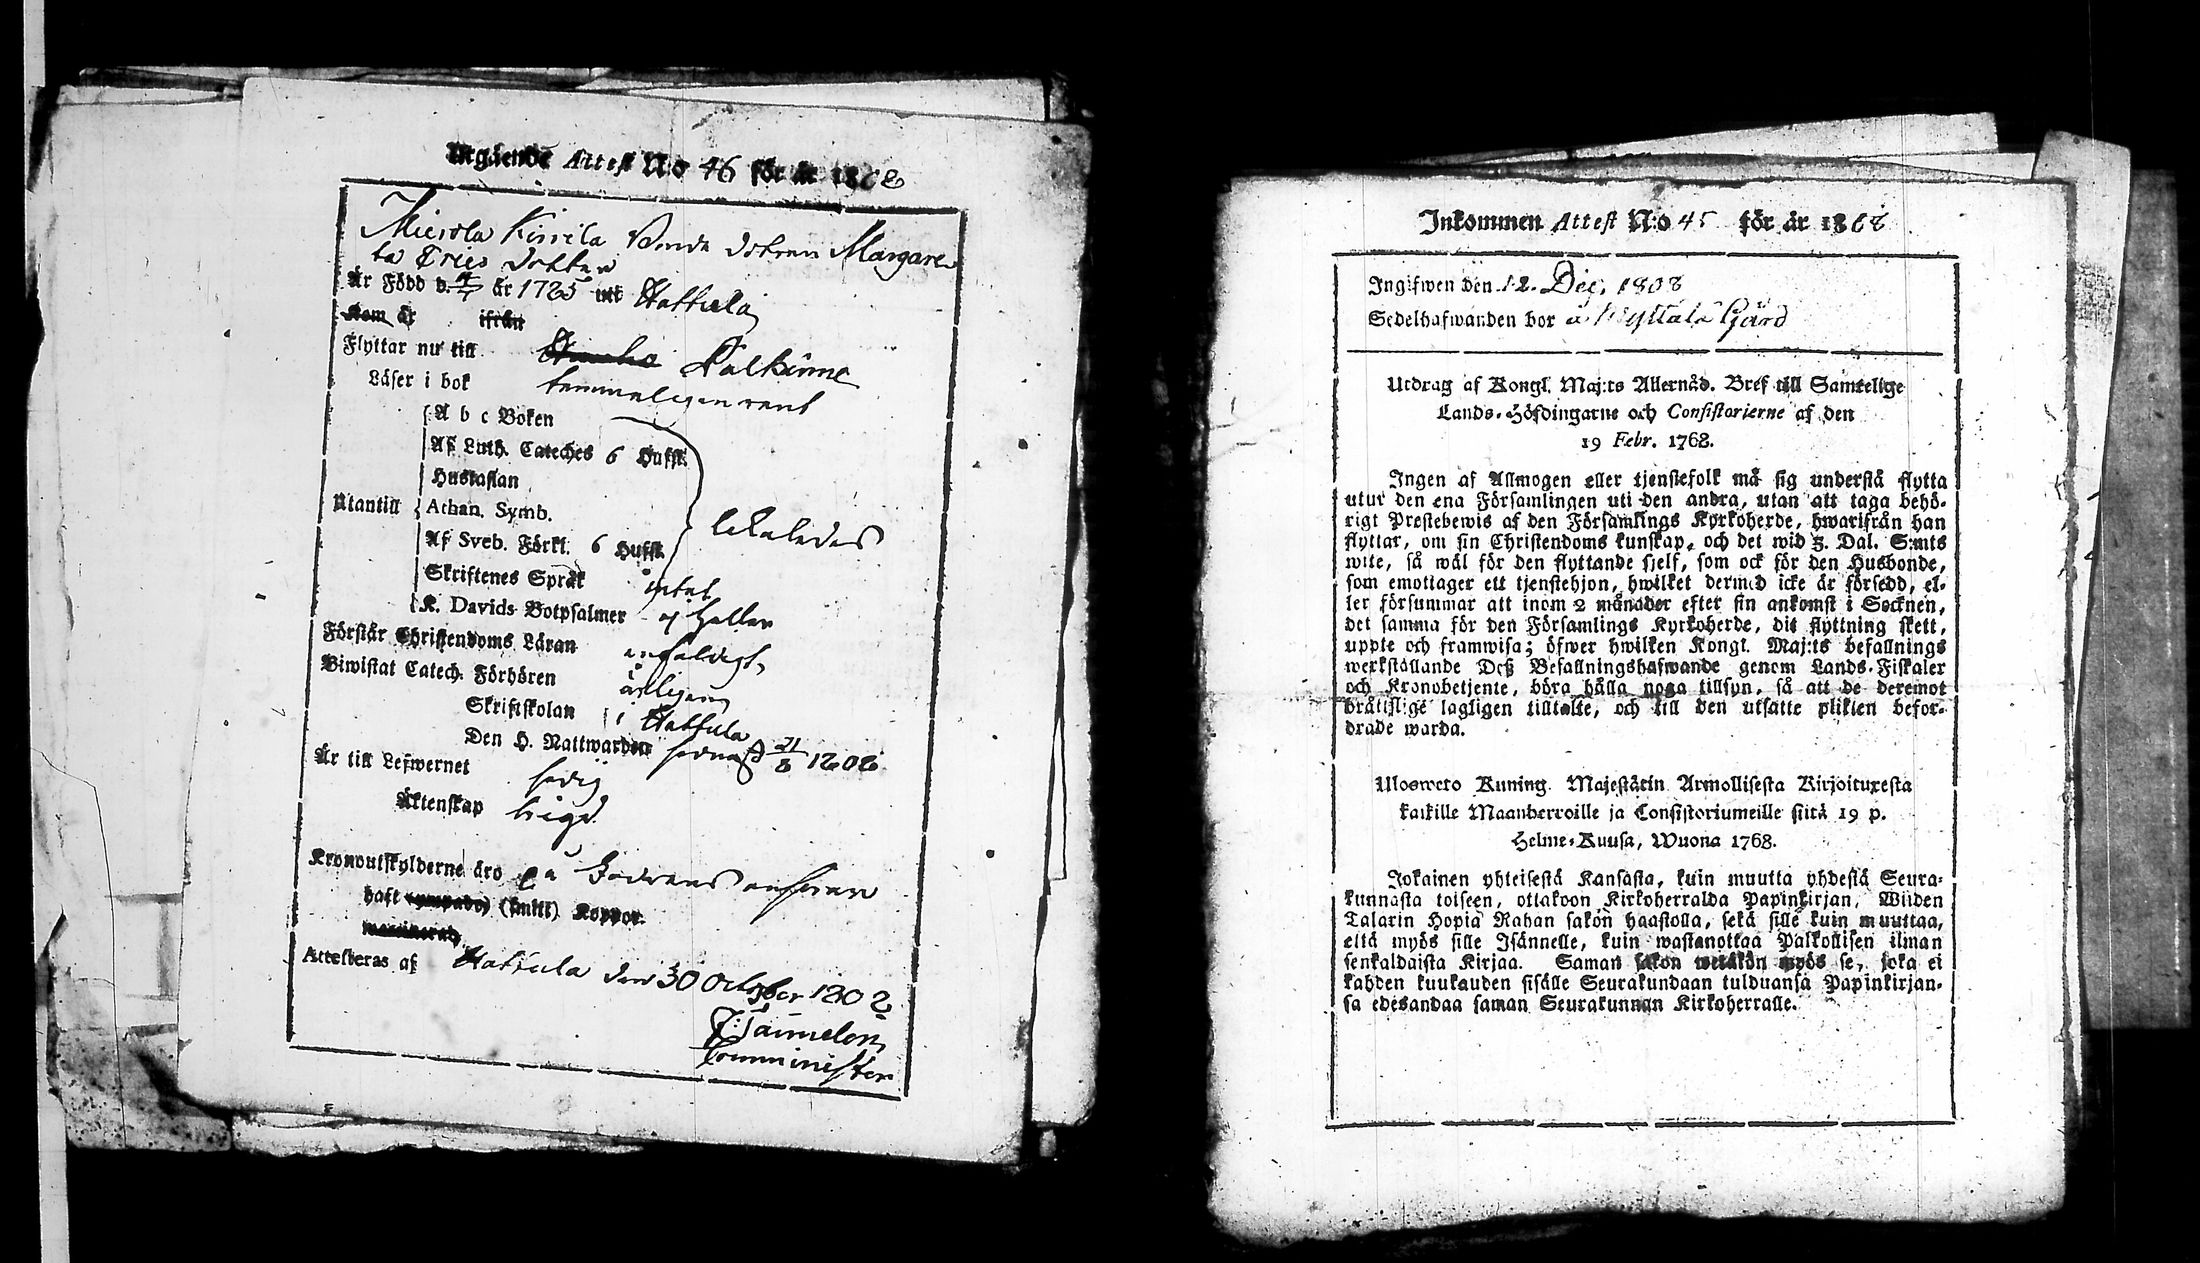 Utgående Attest N:o 46 för år 1808
Mierola Kirrila Bonde dottren Margare
ta Ericsdotter
Är Född d. år 1785 uti Hattula
Kom år ifrån
Flyttar nu till Pälkäne
Läser i bok temmeligen rent
A b c Boken
Af Luth. Cateches 6 Hufst.
Hustaflan
Utantill
Athan. Symb.
Af Sveb. Förkl. 6 Hufst. lekaledes
Skriftenes Språk intet
K. Davids Botpsalmer ej heller
Förstår Christendoms Läran enfaldigt
Biwistat Catech. Förhören årligen
Skriftskolan i Hattula
Den H. Nattwarden sednast 21/8 1808
Är till Lefwernet sedig
Äktenskap ledig
Kronoutskylderne äro på Fadrens ansvar
haft (små) Koppor.
Attesteras af Hattula den 30 October 1808
Comminister
Inkommen Attest N:o 45 för år 1808
Ingifwen den 12. Dec. 1808
Sedelhafwanden bor å Gård
Utdrag af Kongl. Maj:ts Allernåd. Bref till Samtelige
Lands-Höfdingarne och Consistorierne af den
19 Febr. 1768.
Ingen af Allmogen eller tjenstefolk må sig understå flytta
utur den ena Församlingen uti den andra, utan att taga behö-
rigt Prestebewis af den Församlings Kyrkoherde, hwarifrån han
flyttar, om sin Christendoms kunskap, och det wid 3. Dal. S:mts
wite, så wäl för den flyttande sjelf, som ock för den Husbonde,
som emottager ett tjenstehjon, hwilket dermed icke är försedd, el-
ler försummar att inom 2 månader efter sin ankomst i Socknen,
det samma för den Församlings Kyrkoherde, dit flyttning skett,
uppte och framwisa; öfwer hwilken Kongl. Maj:ts befallnings
werkställande Deß Befallningshafwande genom Lands-Fiskaler
och Kronobetjente, böra hålla noga tillsyn, så att de deremot
bråttslige lagligen tilltalte, och till den utsatte plikten befor-
drade warda.
Ulosweto Kuning. Majestätin Armollisesta Kirjoituxesta
kaikille Maanherroille ja Consistoriumeille siitä 19 p.
Helme-Kuusa, Wuona 1768.
Jokainen yhteisestä Kansasta, kuin muutta yhdestä Seura-
kunnasta toiseen, ottakoon Kirkoherralda Papinkirjan, Wiiden
Talarin Hopia Rahan sakon haastolla, sekä sille kuin muuttaa,
että myös sille Isännelle, kuin wastanottaa Palkollisen ilman
senkaldaista Kirjaa. Saman sakon wetäkön myös se, joka ei
kahden kuukauden sisälle Seurakundaan tulduansa Papinkirjan-
sa edesandaa saman Seurakunnan Kirkoherralle.